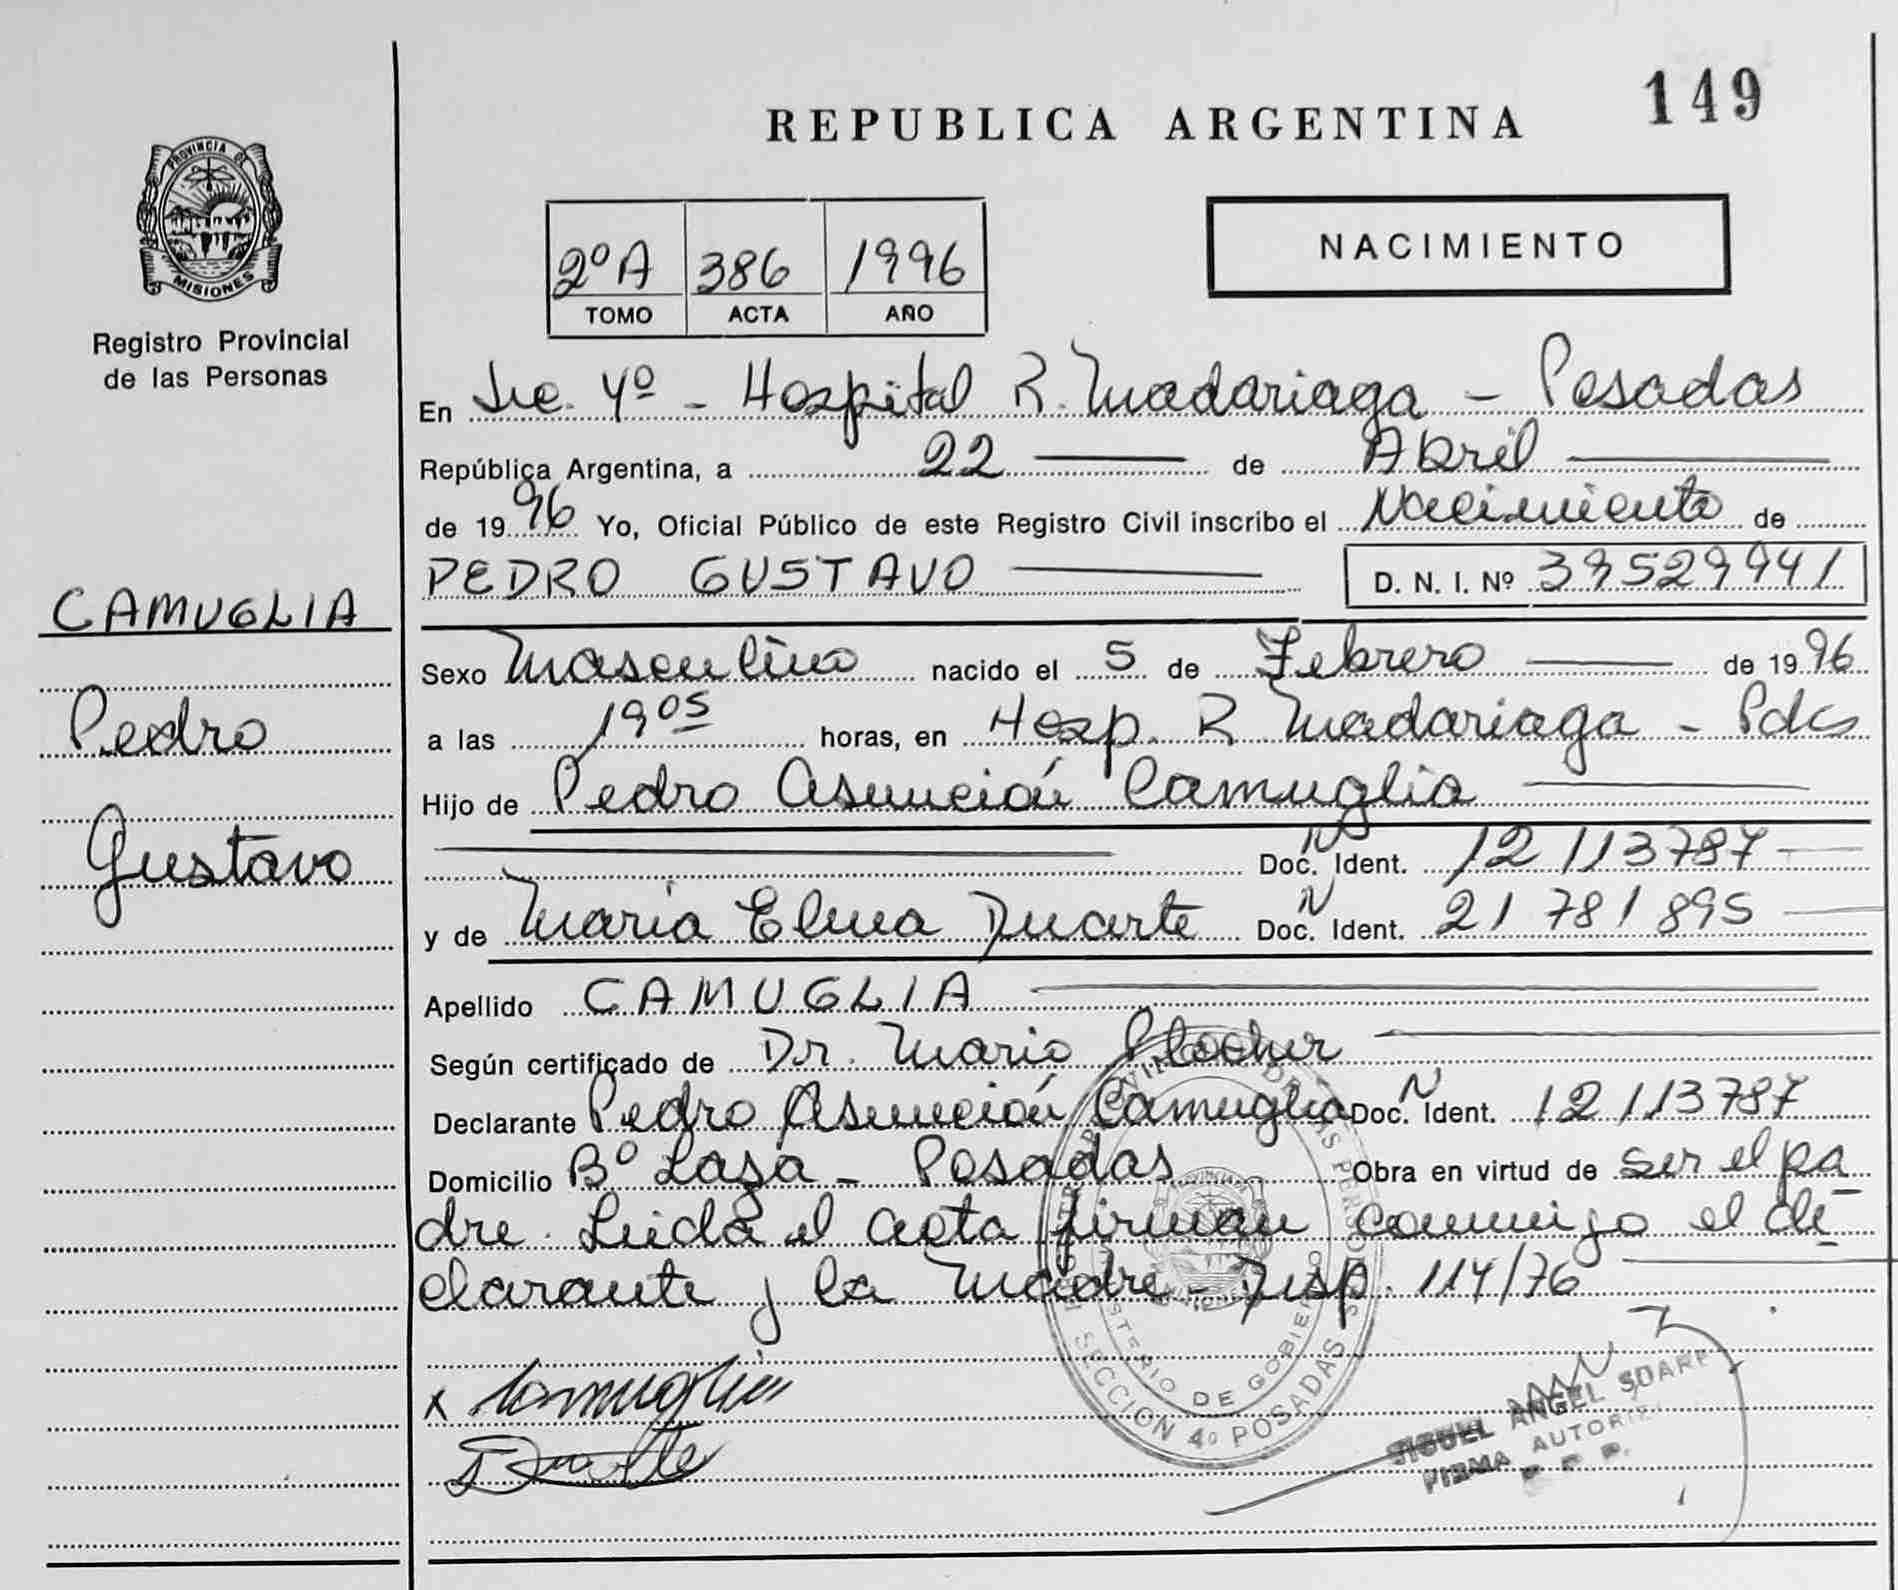 149
REPUBLICA ARGENTINA
PROVINCIA DE
MISIONES
Registro Provincial
de las Personas
NACIMIENTO
2º A 386 1996
TOMO ACTA AÑO
En Sec. 4º - Hospital R. Madariaga - Posadas
República Argentina, a 22 de Abril
de 1996 Yo, Oficial Público de este Registro Civil inscribo el Nacimiento de
PEDRO GUSTAVO D. N. I. Nº 39529941
CAMUGLIA
Pedro
Gustavo
Sexo Masculino nacido el 5 de Febrero de 1996
a las 19 05 horas, en Hosp. R. Madariaga - Pdas
Hijo de Pedro Asunción Camuglia
Doc. N Ident. 12 113787
y de Maria Elma Duarte Doc. N Ident. 21 781 895
Apellido CAMUGLIA
Según certificado de Dr. Mario
Declarante Pedro Asunción Camuglia Doc. N Ident. 12 113787
Domicilio Bº - Posadas Obra en virtud de ser el pa
dre. Leida el acta firman conmigo el de
clarante y la Madre - Disp. 114/76
MINISTERIO DE GOBIERNO
SECCION 4º POSADAS
x Camuglia
Duarte
MIGUEL ANGEL
FIRMA